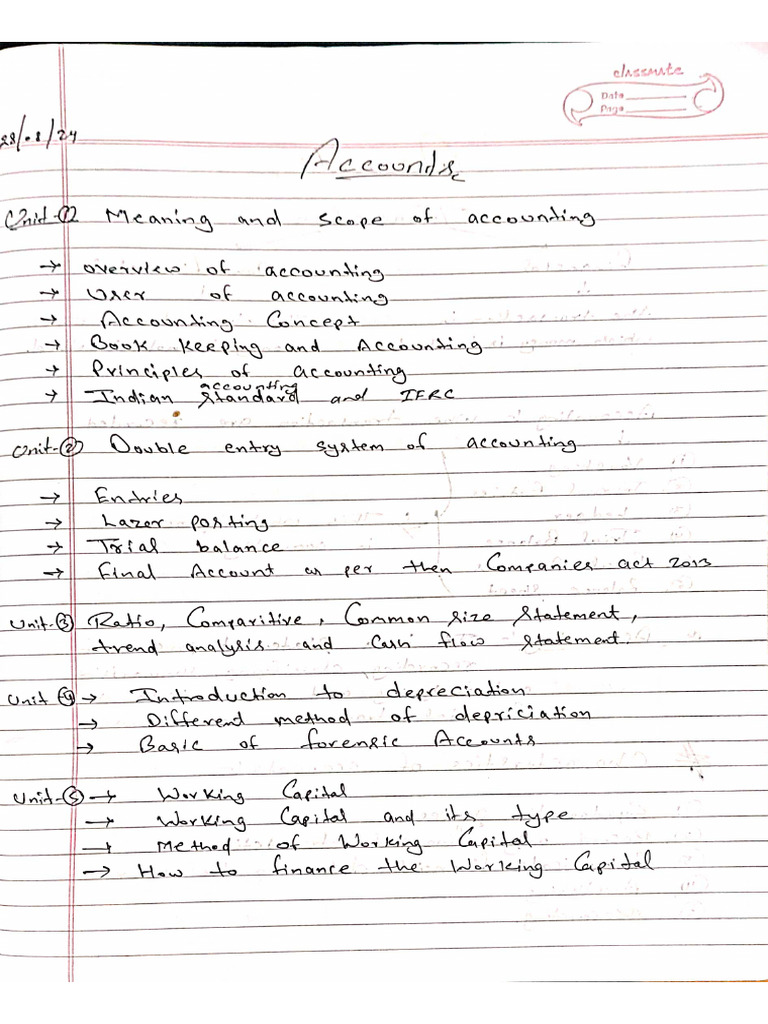 classmate
Date
Page
28/08/24
Accounts
Unit-① Meaning and scope of accounting
→ overview of accounting
→ User of accounting
→ Accounting Concept
→ Book keeping and Accounting
→ Principles of accounting
→ Indian accounting Standard and IFRC
Unit-② Double entry system of accounting
→ Entries
→ Lazer posting
→ Trial balance
→ Final Account as per then Companies act 2013
Unit-③ Ratio, Comparitive, Common size statement,
trend analysis and Cash flow statement.
Unit ④ → Introduction to depreciation
→ Different method of depriciation
→ Basic of forensic Accounts
Unit-⑤ → Working Capital
→ Working Capital and its type
→ Method of Working Capital
→ How to finance the Working Capital